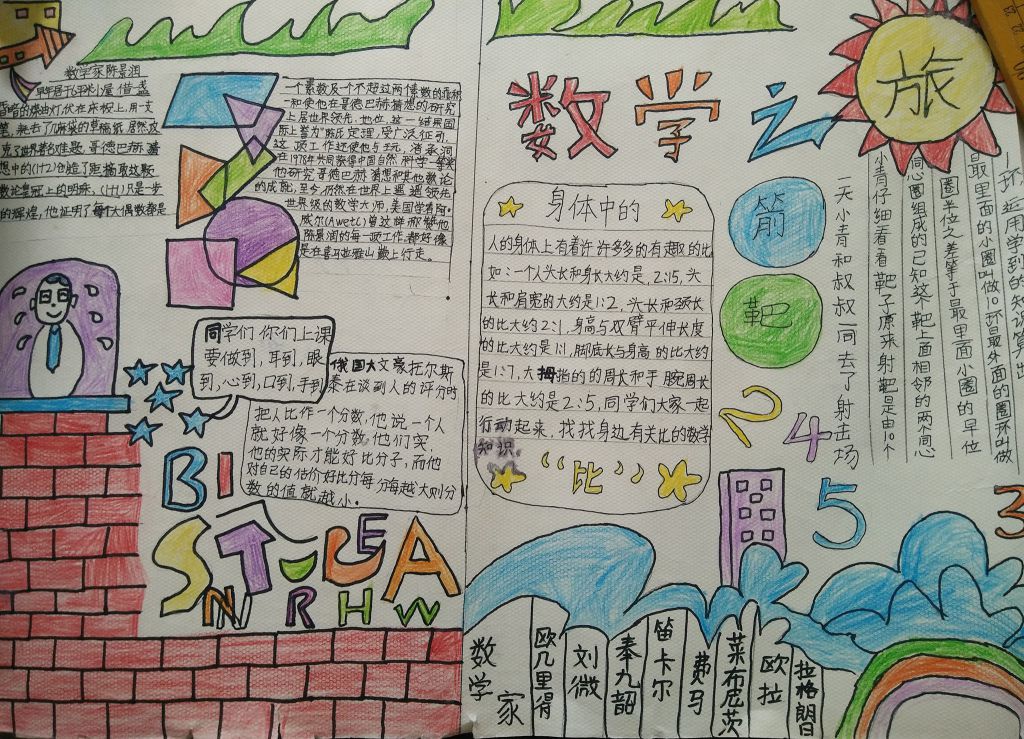 数学之旅
数学家陈景润
笔，耗去了几麻袋的草稿纸，居然攻
克了世界著名难题，哥德巴赫猜
想中的(1+2)创造了距摘取这颗
数论皇冠上的明珠，(1+1)只是一步
的辉煌，他证明了每个大偶数都是
一个素数及个不超过两个素数的乘积
和使他在哥德巴赫猜想的研究
上居世界领先
际上誉为陈氏定理，受广泛征引，
这项工作还使他与王元，潘承洞
在1978年共同获得中国自然科学一等奖
他研究哥德巴赫猜想和其他数论
的成就，至今仍然在世界上遥遥领先
世界级的数学大师，美国学者阿。
威尔(Awetl)曾这样称赞他
陈景润的每一项工作，都好像
是在喜马亚雅山巅上行走。
同学们你们上课
要做到，耳到，眼
到，心到，口到，手到
俄国大文豪托尔斯
泰在谈到人的评分时
把人比作一个分数，他说一个人
就好像一个分数，他们实，
他的实际才能好比分子，而他
对自己的估价好比分每，分每越大则分
数的值就越小。
BI
STUDEA
NN R H W
身体中的
人的身体上有着许许多多的有趣的比
如：一个人头长和身长大约是，2:15，头
长和肩宽的大约是1:2，头长和颈长
的比大约2:1，身高与双臂平伸长度
的比大约是1:1，脚底长与身高的比大约
是1:7，大拇指的的周长和手腕周长
的比大约是2:5，同学们大家一起
行动起来，找找身边有关比的数学
知识。
“比”
箭
靶
一天小青和叔叔一同去了射击场
小青仔细看看靶子原来射靶是由10个
同心圆组成的已知这个靶上面相邻的两个同心
圆半位之差等于最里面小圆的半位
最里面的小圆叫做10环最外面的圆环叫做
1环，运用学到的知识算出
2
4
5
3
数学家
欧几里得
刘微
奉九韶
笛卡尔
费马
莱布尼茨
欧拉
拉格朗日